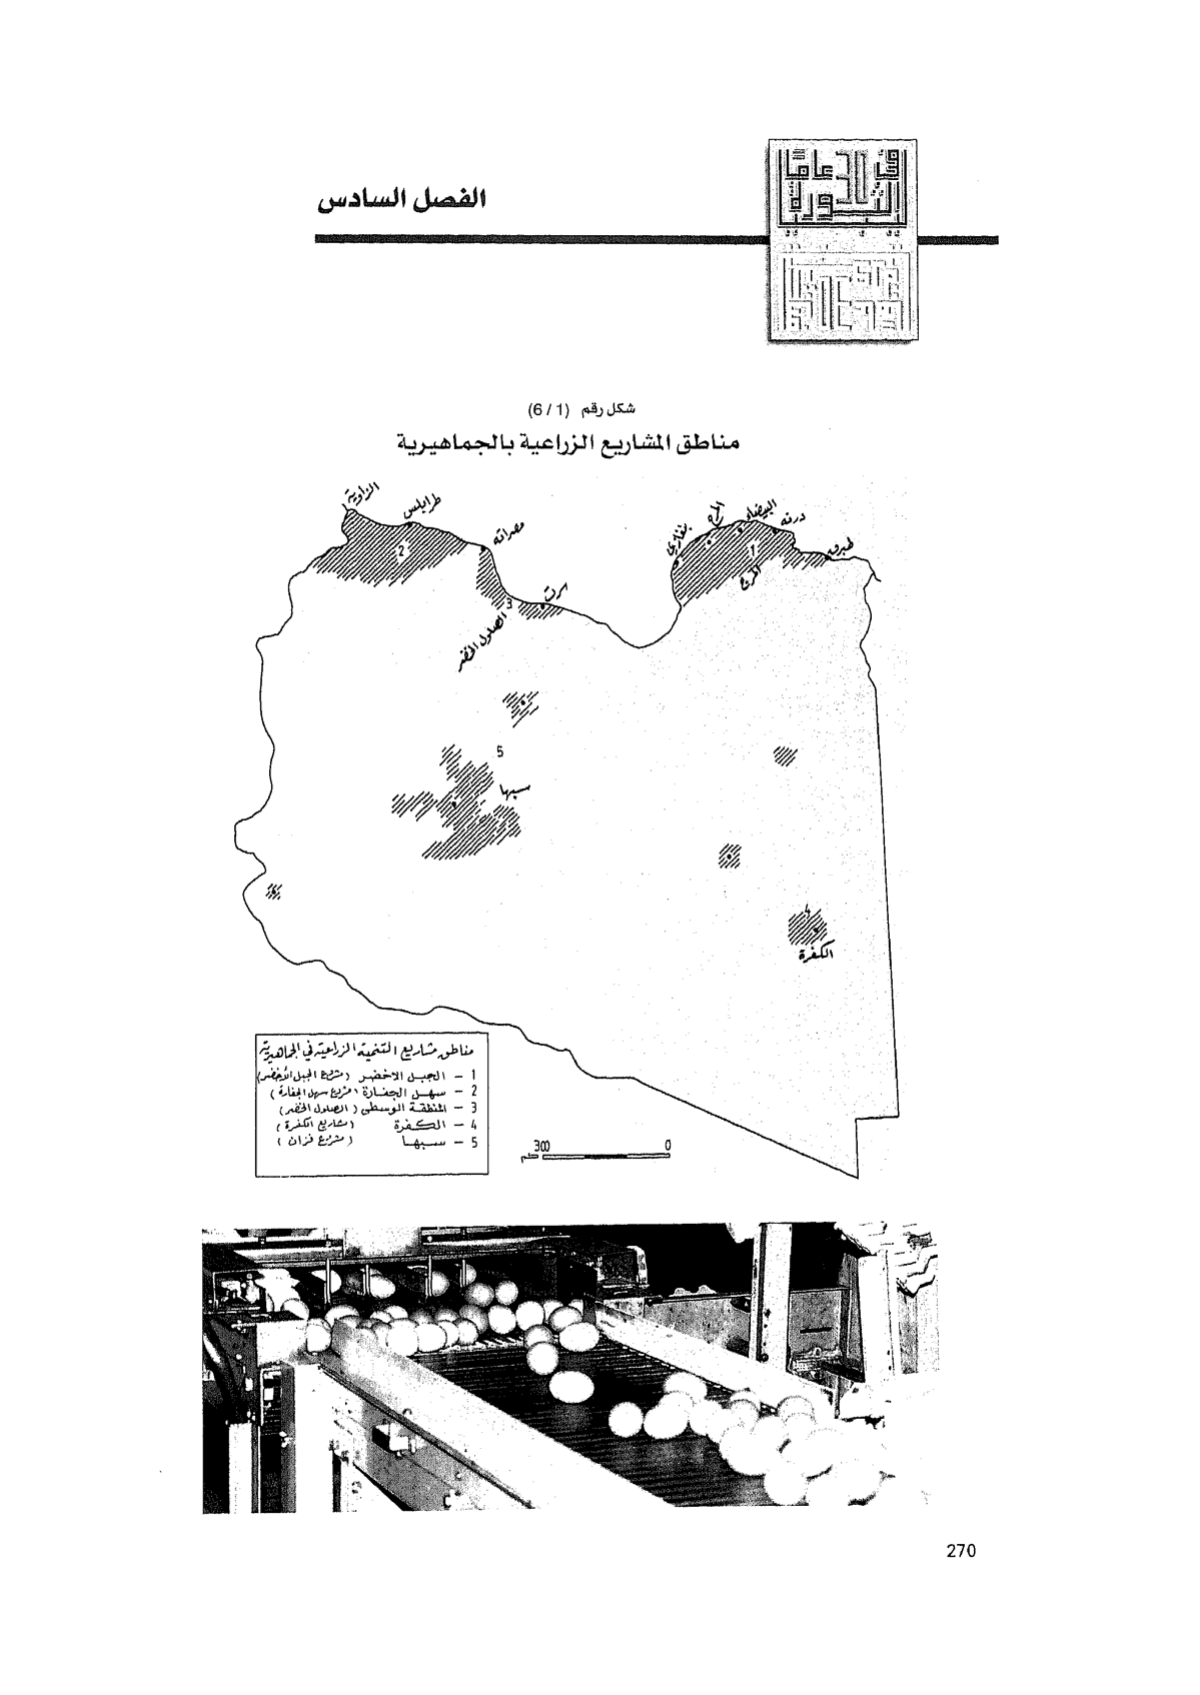 الفصل السادس
في 30 عامًا
الثورة
ليبيا
شكل رقم (6/1)
مناطق المشاريع الزراعية بالجماهيرية
الزاوية
طرابلس
مصراته
سرت
3
الصلول الخضر
2
بنغازي
المرج
البيضاء
درنه
طبرق
1
المرج
5
سبها
4
الكفرة
مناطق مشاريع التنمية الزراعية في الجماهيرية
1 – الجبل الاخضر (مشروع الجبل الأخضر)
2 – سهل الجفارة (مشروع سهل الجفارة)
3 – المنطقة الوسطى (الصلول الخضر)
4 – الكفرة (مشاريع الكفرة)
5 – سبها (مشروع فزان)
300 0
كم
270